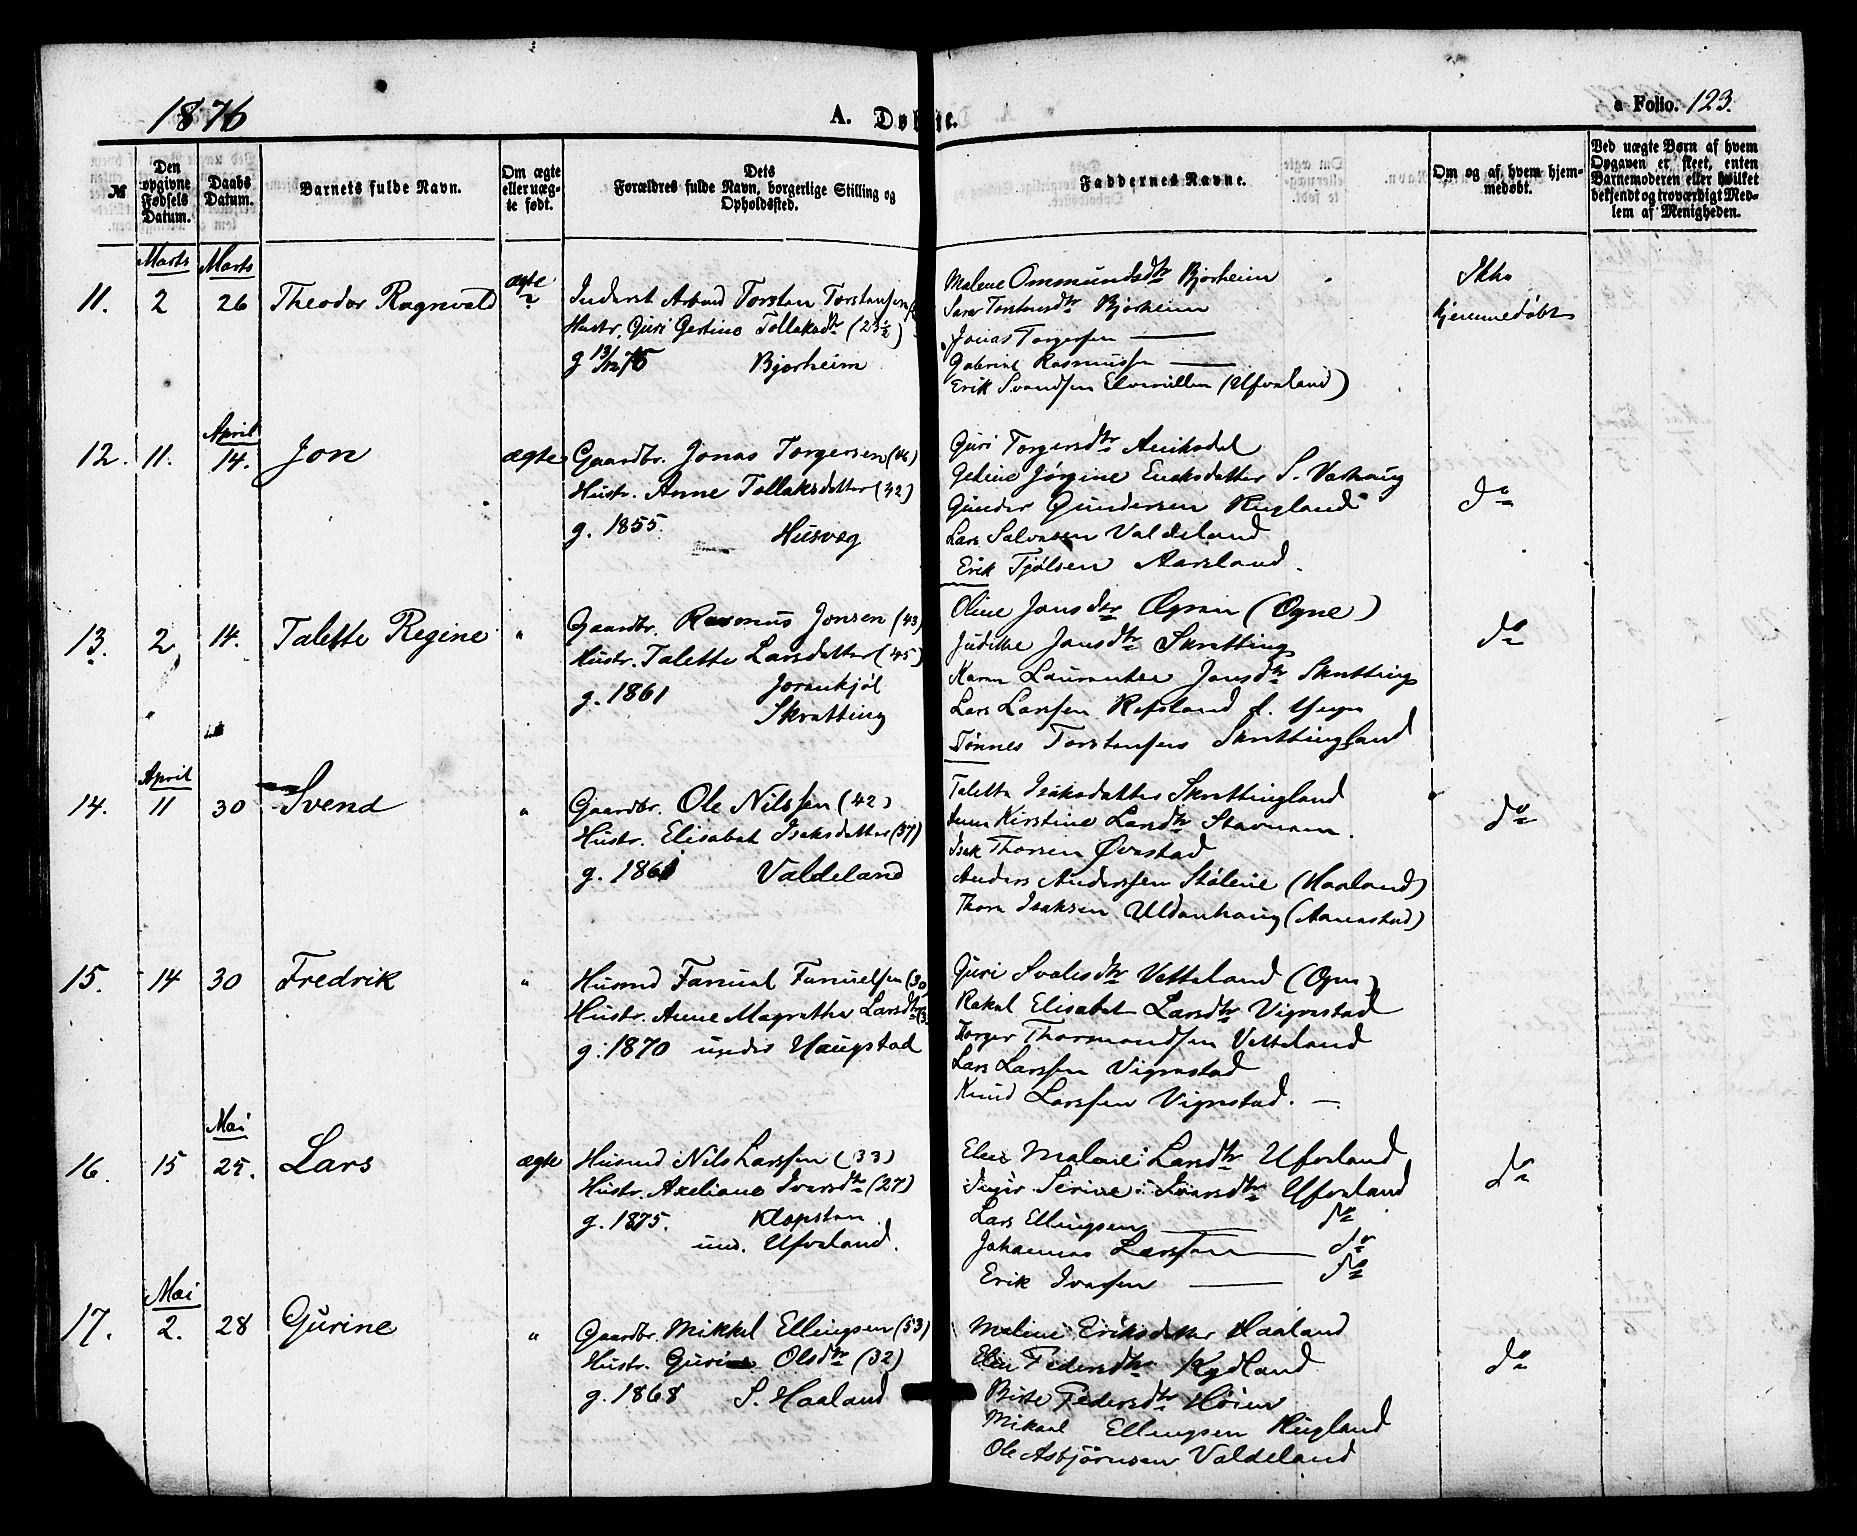 1876
A. Døbte.
a Folio. 123.
№
Den opgivne Fødsels Datum.
Daabs Datum.
Barnets fulde Navn.
Om ægte eller uægte født.
Dets Forældres fulde Navn, borgerlige Stilling og Opholdssted.
Faddernes Navne.
Om og af hvem hjemmedøbt.
Ved uægte Børn af hvem Opgaven er skeet, enten Barnemoderen eller hvilket bekjendt og troværdigt Medlem af Menigheden.
Marts Marts
11. 2 26 Theodor Ragnvald ægte
Inderst Arbmd Torsten Torstensen
Hustr. Guri Gertine Tollaksdtr (23½)
g 13/12 75 Bjorheim
Malene Ommundsdtr Bjorheim
Sara Torstensdtr Bjorheim
Jonas Torgersen —
Gabriel Rasmussen —
Erik Svendsen (Ufsaland)
Ikke
hjemmedøbt
April
12. 11. 14. Jon ægte
Gaardbr. Jonas Torgersen (46)
Hustr. Anne Tollaksdatter (42)
g. 1855. Husveg
Guri Torgersdtr Aniksdal
Jørgine Enoksdatter S. Varhaug
Gunder Gundersen Hugland
Lars Salvesen Valdeland
Erik Tjølsen Aarsland.
do
13. 2 14. Talette Regine "
Gaardbr. Rasmus Jonsen (43)
Hustr. Talette Larsdatter (45)
g. 1861 Joronkjøl
Skretting
Oline Jonsdtr Ogne (Ogne)
Judithe Jonsdtr Skretting
Karen Laurentse Jonsdtr Skretting
Lars Larssen Refsland
Tønnes Torstensen Skrettingland
do
April
14. 11 30 Svend "
Gaardbr. Ole Nilssen (42)
Hustr. Elisabet Isaksdatter (37)
g. 1861 Valdeland
Taletta Isaksdatter Skrettingland
Kirstine Larsdtr Stavnem.
Isak Thorsen Øvrstad
Anders Anderssen Stølene (Haaland)
Thore Isaksen Uldanhaug (Aanestad)
do
15. 14 30 Fredrik "
Husmd Fanuel Fanuelsen (30
Hustr. Anne Magrethe Larsdtr
g. 1870 under Haugstad
Guri Svalesdtr Vetteland (Ogne)
Rakel Elisabet Larsdtr Vigrestad
Torger Thormondsen Vetteland
Lars Larssen Vigrestad
Knud Larssen Vigrestad. —
Mai
16. 15 25. Lars ægte
Husmd Nils Larssen (33)
Hustr. Axeliane Iversdtr (27)
g. 1875. Klopsten
und. Ufsaland.
Elen Malene Larsdtr Ufsaland
Inger Serine Iversdtr Ufsaland
Lars Ellingsen — do
Johannes Larssen — do
Erik Iversen — do
do
Mai
17. 2. 28 Gurine "
Gaardbr. Mikkel Ellingsen (53)
Hustr. Gurine Olsdtr (32)
g. 1868 S. Haaland
Malene Eriksdatter Haaland
Elen Pedersdtr Kydland
Birte Pedersdtr Høien
Mikael Ellingsen Hugland
Ole Asbjørnsen Valdeland
do